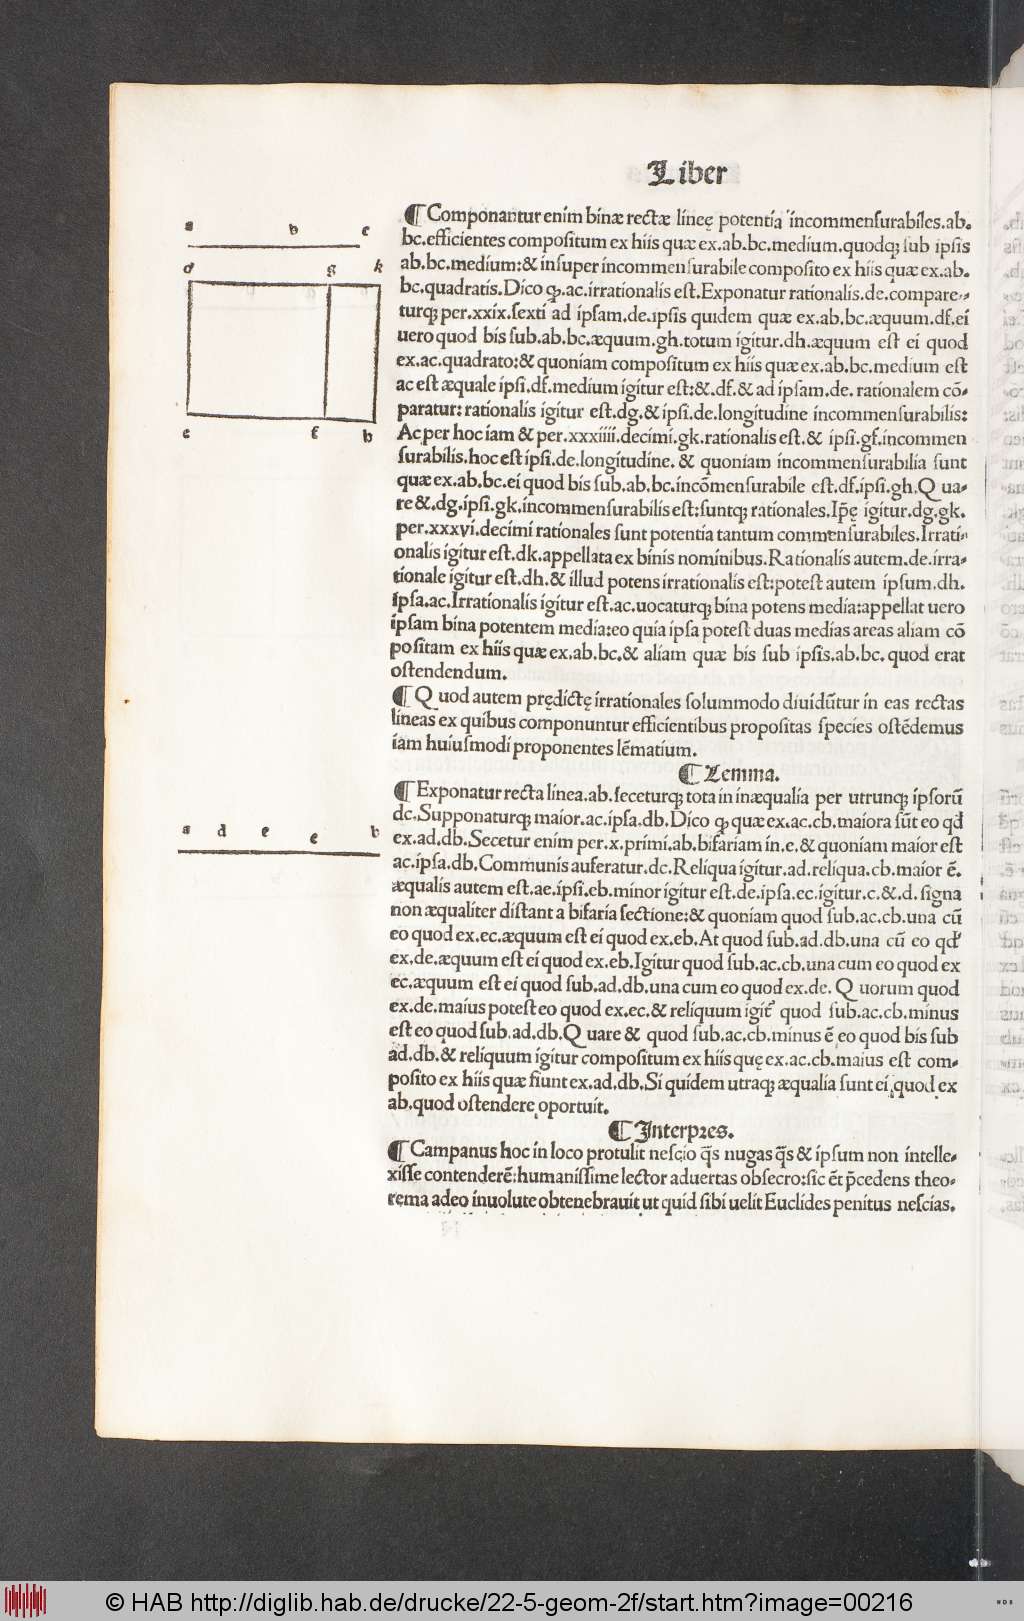 Liber
¶ Componantur enim binæ rectæ lineę potentia incommensurabiles.ab.
bc.efficientes compositum ex hiis quæ ex.ab.bc.medium.quodqꝫ sub ipsis
ab.bc.medium:& insuper incommensurabile composito ex hiis quæ ex.ab.
bc.quadratis.Dico ꝙ.ac.irrationalis est.Exponatur rationalis.de.compare-
turqꝫ per.xxix.sexti ad ipsam.de.ipsis quidem quæ ex.ab.bc.æquum.df.ei
uero quod bis sub.ab.bc.æquum.gh.totum igitur.dh.æquum est ei quod
ex.ac.quadrato:& quoniam compositum ex hiis quæ ex.ab.bc.medium est
ac est æquale ipsi.df.medium igitur est:&.df.& ad ipsam.de.rationalem cō-
paratur: rationalis igitur est.dg.& ipsi.de.longitudine incommensurabilis:
Ac per hoc iam & per.xxxiiii.decimi.gk.rationalis est.& ipsi.gf.incommen
surabilis.hoc est ipsi.de.longitudine.& quoniam incommensurabilia sunt
quæ ex.ab.bc.ei quod bis sub.ab.bc.incōmensurabile est.df.ipsi.gh.Qua-
re &.dg.ipsi.gk.incommensurabilis est:suntqꝫ rationales.Ip̄ę igitur.dg.gk.
per.xxxvi.decimi rationales sunt potentia tantum commensurabiles.Irrati-
onalis igitur est.dk.appellata ex binis nominibus.Rationalis autem.de.irra-
tionale igitur est.dh.& illud potens irrationalis est:potest autem ipsum.dh.
ipsa.ac.Irrationalis igitur est.ac.uocaturqꝫ bina potens media:appellat uero
ipsam bina potentem media:eo quia ipsa potest duas medias areas aliam cō
positam ex hiis quæ ex.ab.bc.& aliam quæ bis sub ipsis.ab.bc.quod erat
ostendendum.
¶ Quod autem prędictę irrationales solummodo diuidūtur in eas rectas
lineas ex quibus componuntur efficientibus propositas species ostēdemus
iam huiusmodi proponentes lēmatium.
¶ Lemma.
¶ Exponatur recta linea.ab.seceturqꝫ tota in inæqualia per utrunqꝫ ipsorū
dc.Supponaturqꝫ maior.ac.ipsa.db.Dico ꝙ quæ ex.ac.cb.maiora sūt eo qd
ex.ad.db.Secetur enim per.x.primi.ab.bifariam in.e.& quoniam maior est
ac.ipsa.db.Communis auferatur.dc.Reliqua igitur.ad.reliqua.cb.maior ē.
æqualis autem est.ae.ipsi.eb.minor igitur est.de.ipsa.ec.igitur.c.&.d.signa
non æqualiter distant a bifaria sectione:& quoniam quod sub.ac.cb.una cū
eo quod ex.ec.æquum est ei quod ex.eb.At quod sub.ad.db.una cū eo qd
ex.de.æquum est ei quod ex.eb.Igitur quod sub.ac.cb.una cum eo quod ex
ec.æquum est ei quod sub.ad.db.una cum eo quod ex.de.Quorum quod
ex.de.maius potest eo quod ex.ec.& reliquum igit̃ quod sub.ac.cb.minus
est eo quod sub.ad.db.Quare & quod sub.ac.cb.minus ē eo quod bis sub
ad.db.& reliquum igitur compositum ex hiis quę ex.ac.cb.maius est com-
posito ex hiis quæ fiunt ex.ad.db.Si quidem utraqꝫ æqualia sunt ei quod ex
ab.quod ostendere oportuit.
¶ Interpres.
¶ Campanus hoc in loco protulit nescio q̄s nugas q̄s & ipsum non intelle-
xisse contenderē:humanissime lector aduertas obsecro:sic ēt p̄cedens theo-
rema adeo inuolute obtenebrauit ut quid sibi uelit Euclides penitus nescias.
a b c
d g k
e f h
a d e c b
© HAB http://diglib.hab.de/drucke/22-5-geom-2f/start.htm?image=00216